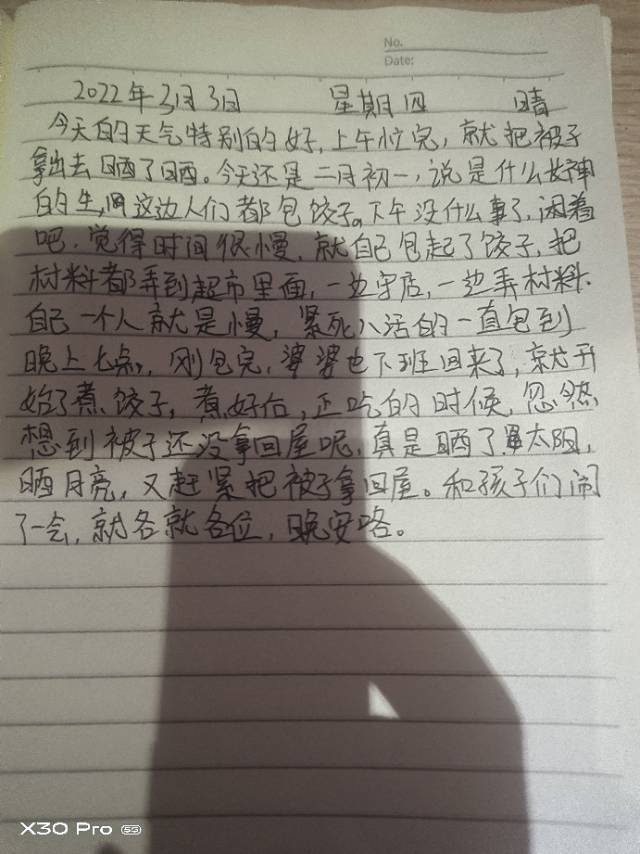 No.
Date:
2022年3月3日 星期四 晴
今天的天气特别的好，上午忙完，就把被子
拿出去晒了晒。今天还是二月初一，说是什么女神
的生，这边人们都包饺子。下午没什么事了，闲着
吧，觉得时间很慢，就自己包起了饺子，把
材料都弄到超市里面，一边守店，一边弄材料，
自己一个人就是慢，紧死八活的一直包到
晚上七点，刚包完，婆婆也下班回来了，就开
始了煮饺子，煮好后，正吃的时候，忽然
想到被子还没拿回屋呢，真是晒了太阳，
晒月亮，又赶紧把被子拿回屋。和孩子们闹
了一会，就各就各位，晚安咯。
X30 Pro 5G